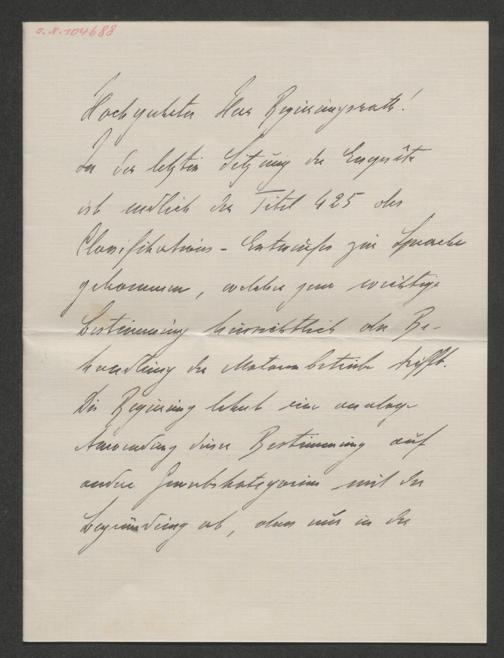 J.N. 104688
Hochgeehrter Herr Regierungsrath!
In der letzten Sitzung der Enquête
ist endlich der Titel 425 des
Classifikations-Entwurfes zur Sprache
gekommen, welcher jene wichtige
Bestimmung hinsichtlich der Be-
handlung der Motorenbetriebe trifft.
Die Regierung lehnt eine analoge
Anwendung dieser Bestimmung auf
andere Gewerbskategorien mit der
Begründung ab, dass nur in der